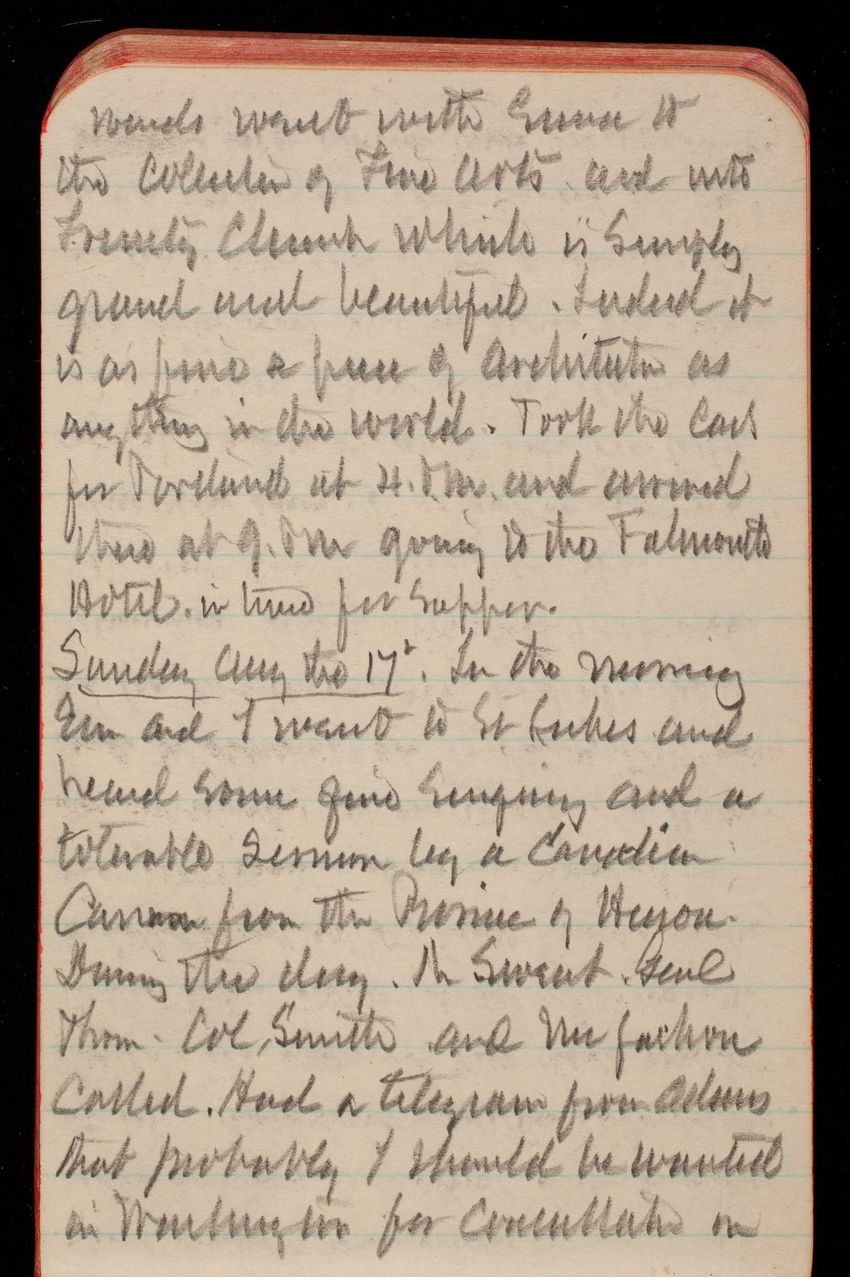 wards went with Emma to
the Collection of Fine Arts and into
Trinity Church which is simply
grand and beautiful. Indeed it
is as fine a piece of Architectu as
anything in the world. Took the Cars
for Portland at 4. P.M. and arrived
there at 9. PM going to the Falmouth
Hotel. in time for Supper.
Sunday Aug the 17". In the morning
Em and I went to St Lukes and
heard some fine singing and a
tolerable sermon by a Canadian
Cannon from the Province of Huron.
During the day. Mr Sweat. Genl
Thom. Col, Smith and Mr
Called. Had a telegram from Adams
that probably I should be wanted
in Washington for Consultatn on